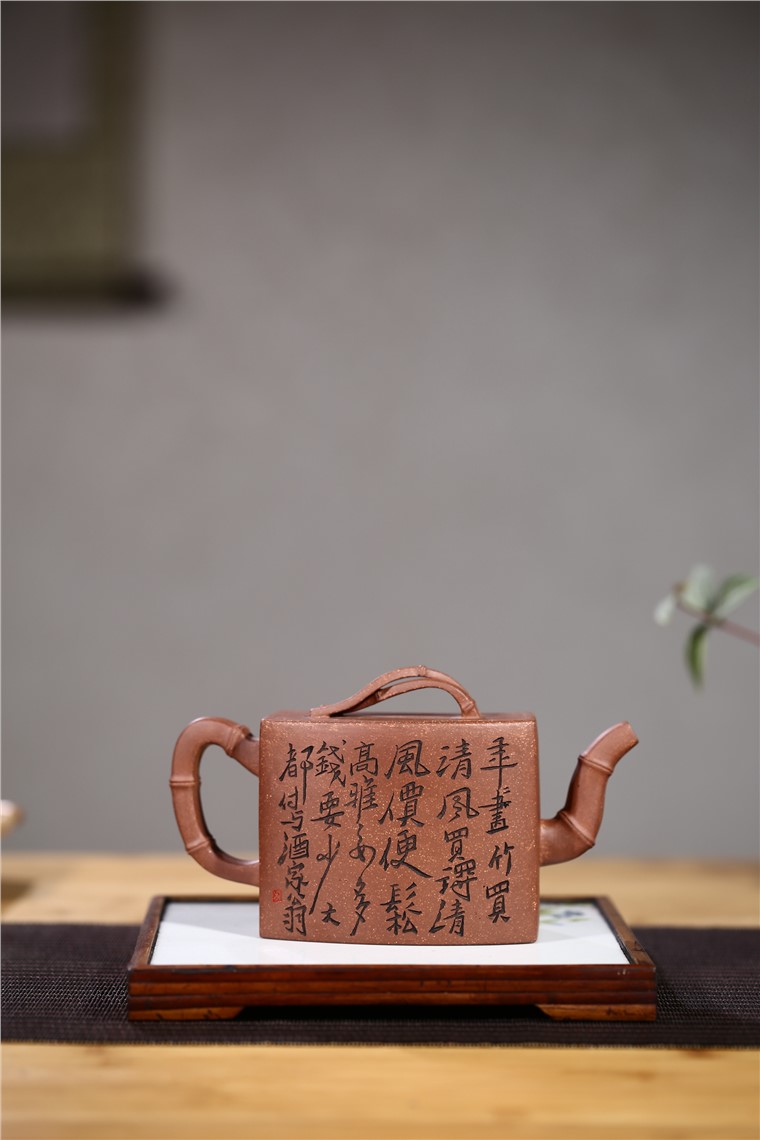 年々畫竹買
清風買得清
風價便鬆
高雅要多
錢要少大
都付与酒家翁